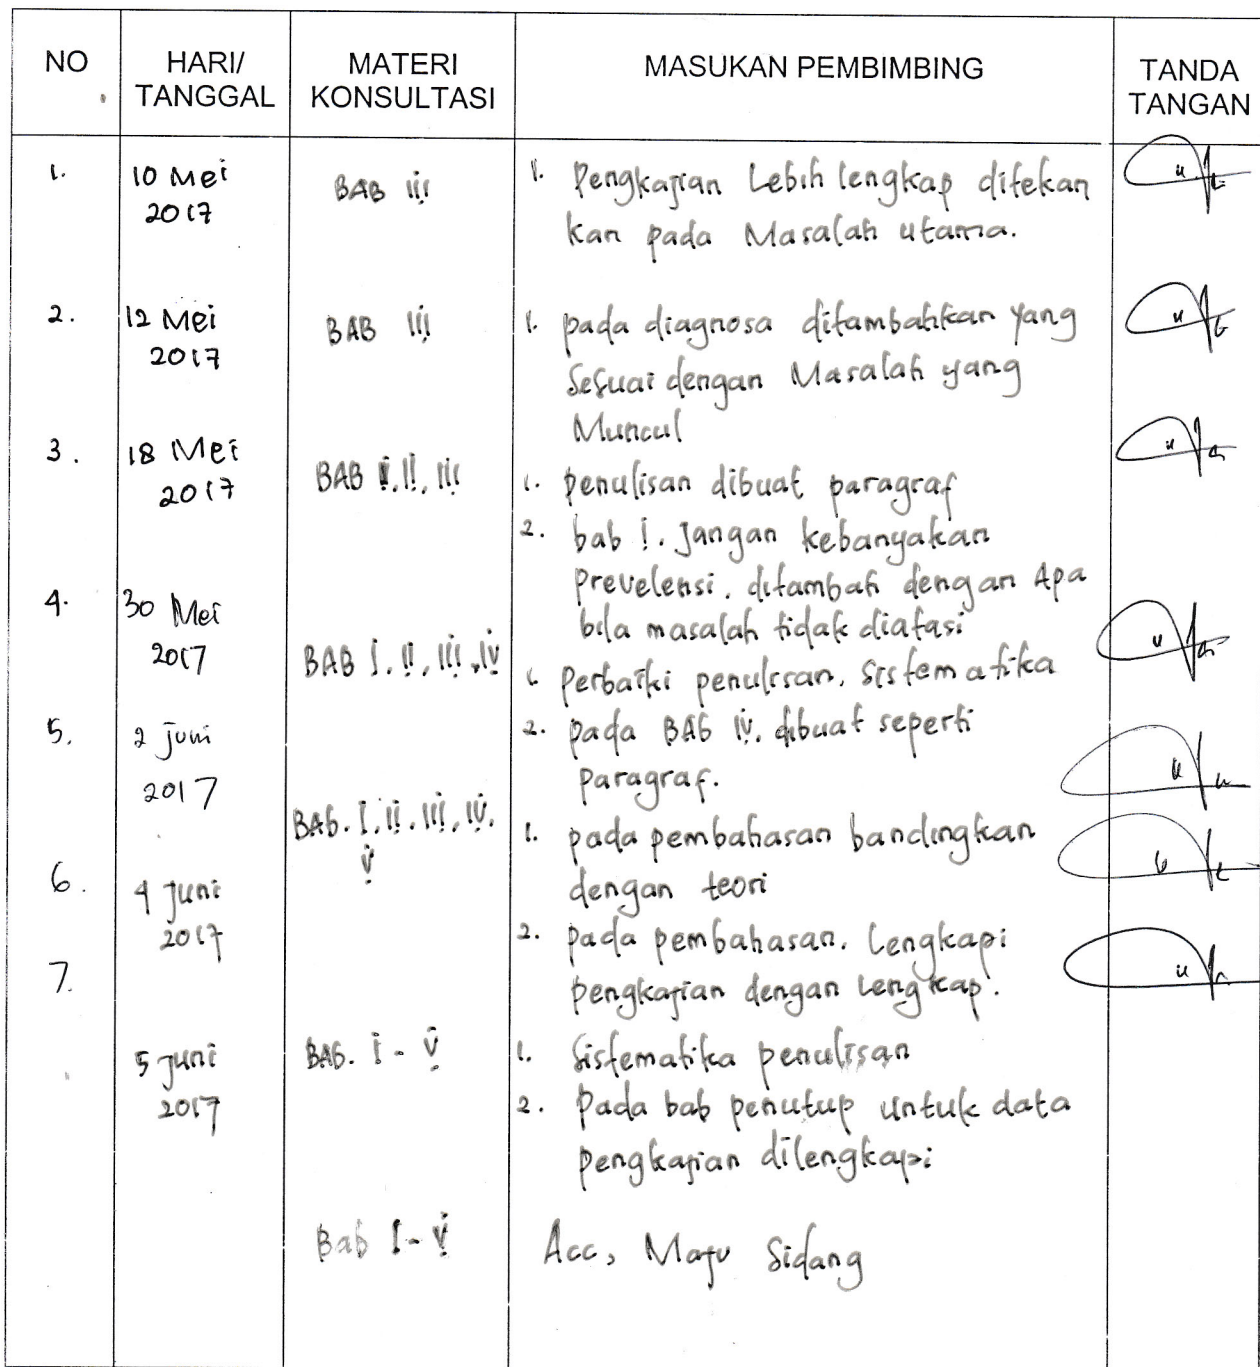 NO
HARI/
TANGGAL
MATERI
KONSULTASI
MASUKAN PEMBIMBING
TANDA
TANGAN
1.
10 Mei
2017
BAB III
1. Pengkajian Lebih lengkap ditekan
kan pada Masalah utama.
2.
12 Mei
2017
BAB III
1. pada diagnosa ditambahkan yang
Sesuai dengan Masalah yang
Muncul
3.
18 Mei
2017
BAB I, II, III
1. penulisan dibuat paragraf
2. bab I. Jangan kebanyakan
Prevelensi. ditambah dengan Apa
bila masalah tidak diatasi
4.
30 Mei
2017
BAB I. II, III, IV
1. Perbaiki penulisan. Sistematika
2. pada BAB IV. dibuat seperti
Paragraf.
5.
2 juni
2017
BAB. I, II. III, IV.
V
1. pada pembahasan bandingkan
dengan teori
2. pada pembahasan. Lengkapi
pengkajian dengan lengkap.
6.
4 Juni
2017
BAB. I - V
1. Sistematika penulisan
2. Pada bab penutup untuk data
pengkajian dilengkapi
7.
5 Juni
2017
Bab I - V
Acc, Maju Sidang